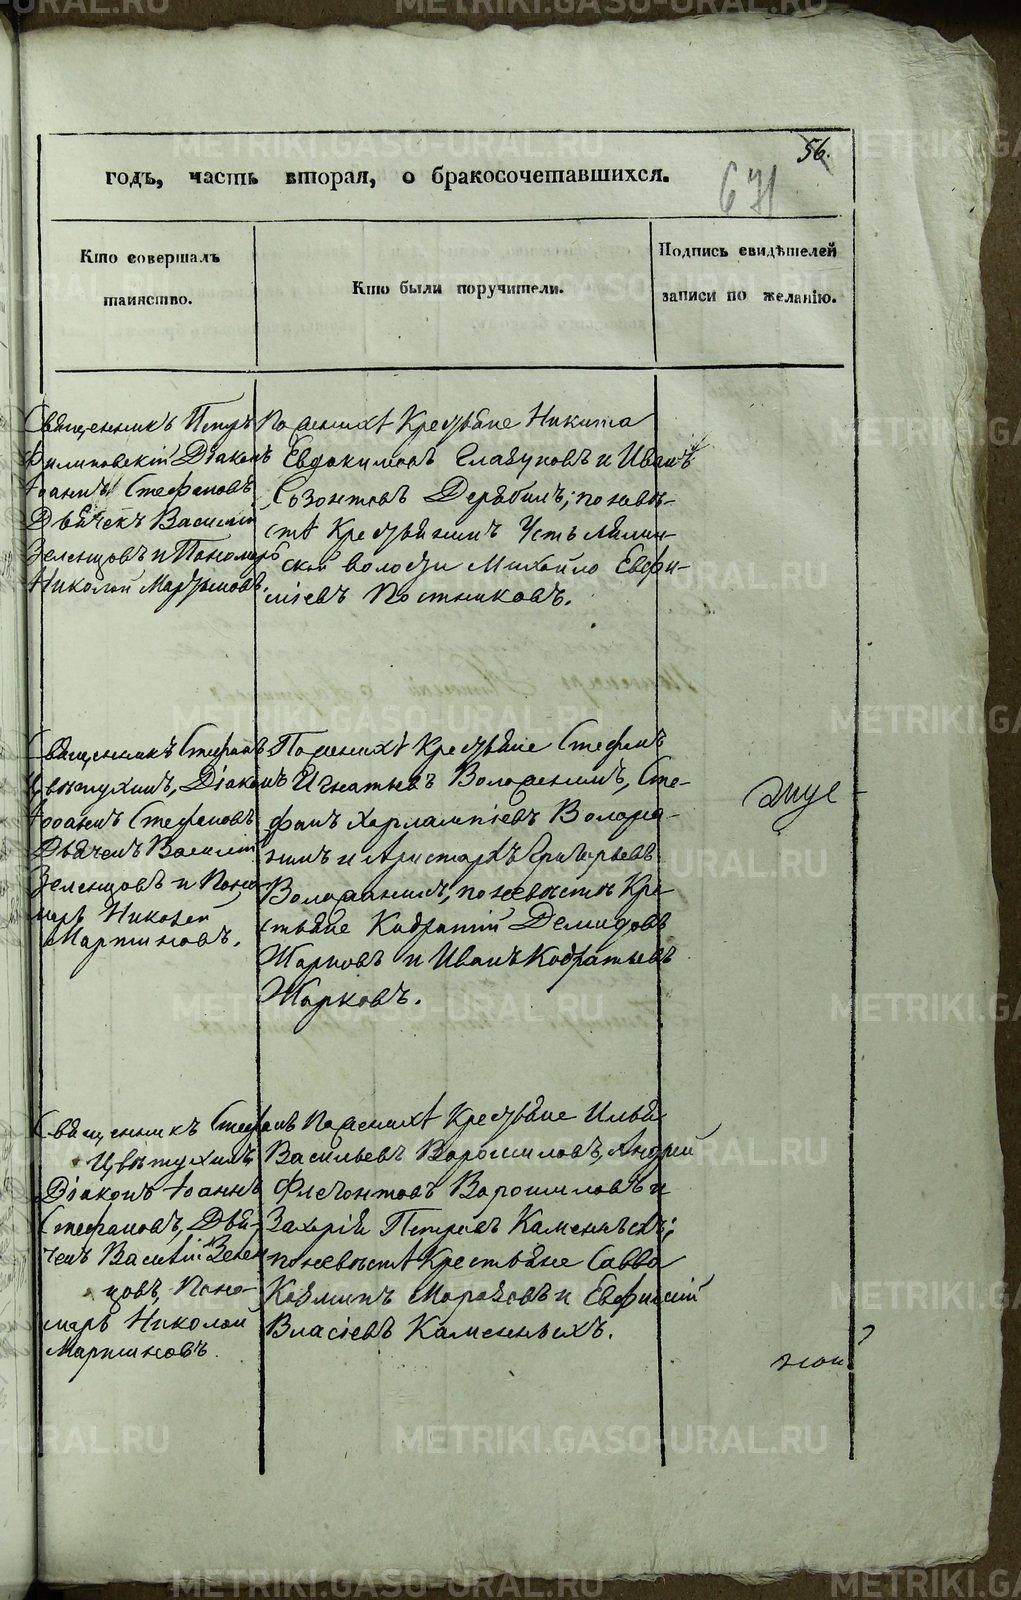 56.
годъ, часть вторая, о бракосочетавшихся.
671
Кто совершалъ
таинство.
Кто были поручители.
Подпись свидѣтелей
записи по желанію.
Священникъ Петръ
Филиповскій Діаконъ
Іоаннъ Стефановъ
Дьячекъ Василій
Зеленцовъ и Пономарь
Николай Мартыновъ.
По женихѣ Крестьяне Никита
Евдокимовъ Глазуновъ и Иванъ
Созонтовъ Дерябинъ; по невѣ-
стѣ Крестьянинъ Усть
ской волости Михайло Евфи-
міевъ Постниковъ.
Священникъ Стефанъ
Цвѣтухинъ, Діаконъ
Іоаннъ Стефановъ
Дьячекъ Василій
Зеленцовъ и Поно-
марь Николай
Мартиновъ.
По женихѣ Крестьяне Стефанъ
Игнатьевъ Воложанинъ, Сте-
фанъ Харлампіевъ Воложа-
нинъ и Аристархъ Григорьевъ
Воложанинъ, по невѣстѣ Кре-
стьяне Кодратій Демидовъ
Жарковъ и Иванъ Кодратьевъ
Жарковъ.
Священникъ Стефанъ
Цвѣтухинъ
Діаконъ Іоаннъ
Стефановъ, Дья-
чекъ Василій Зелен
цовъ, Поно-
марь Николай
Мартиновъ.
По женихѣ Крестьяне Илья
Васильевъ Ворошиловъ, Андрей
Флегонтовъ Ворошиловъ и
Захарій Петровъ Каменныхъ;
по невѣстѣ Крестьяне Савва
Козминъ Морозовъ и Евфимій
Власіевъ Каменныхъ.
METRIKI.GASO-URAL.RU